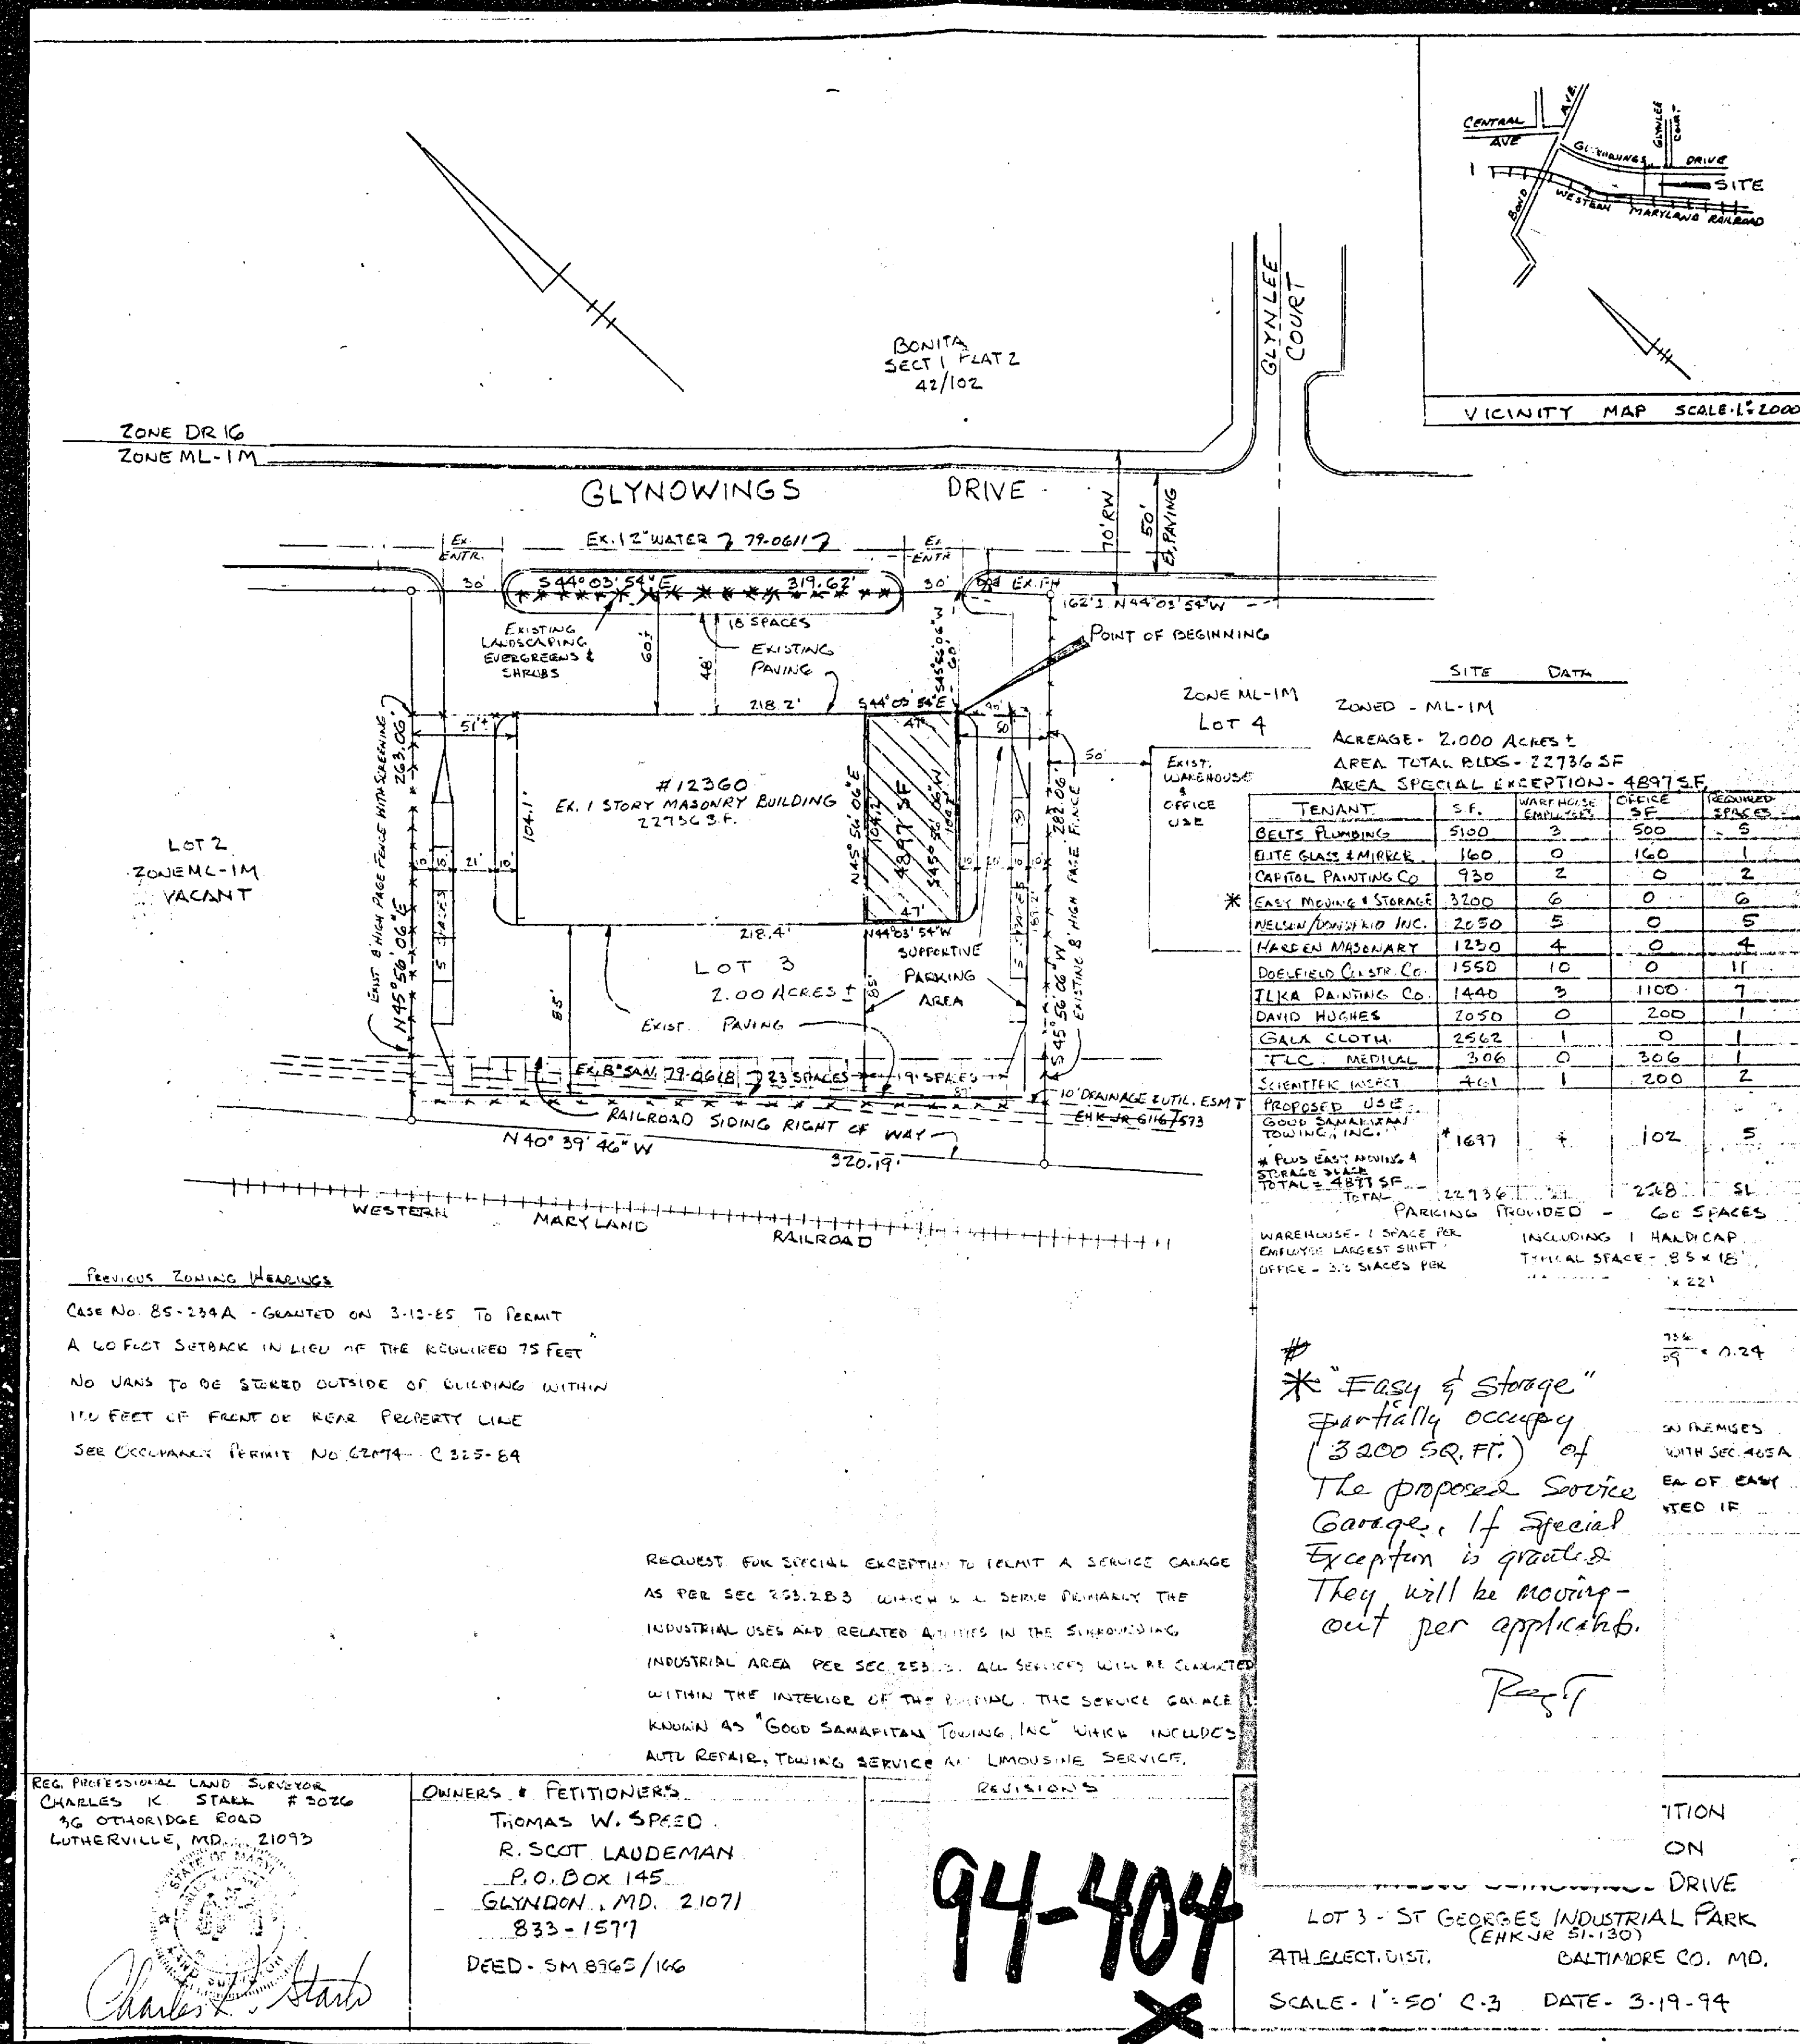 CENTRAL
AVE
AVE.
GLYNLEE
COURT
GLYNOWINGS DRIVE
SITE
BOND
WESTERN MARYLAND RAILROAD
VICINITY MAP SCALE-1"=2000
BONITA
SECT 1 PLAT 2
42/102
GLYNLEE
COURT
ZONE DR 16
ZONE ML-1M
GLYNOWINGS DRIVE
70' RW
50'
EX. PAVING
EX.
ENTR.
EX. 12" WATER 79-0611
EX
ENTR
30'
S 44° 03' 54" E
319.62'
30'
EX. FH
162'± N44°03'54"W
EXISTING
LANDSCAPING
EVERGREENS &
SHRUBS
60'±
18 SPACES
48'
EXISTING
PAVING
S45°56'06"W
60'
POINT OF BEGINNING
51'±
218.2'
S44°03'54"E
47'
50
50'
ZONE ML-1M
LOT 4
EXIST.
WAREHOUSE
&
OFFICE
USE
EXIST 8' HIGH PAGE FENCE WITH SCREENING
263.06'
N45°56'06"E
#12360
EX. 1 STORY MASONRY BUILDING
22736 S.F.
104.1'
N45°56'06"E
104.2'
4897 SF
S45°56'06"W
282.06'
S 45°56'06"W
EXISTING 8' HIGH PAGE FENCE
LOT 2
ZONE ML-1M
VACANT
10'
10'
21'
10'
5 SPACES
5 SPACES
47'
218.4'
N44°03'54"W
SUPPORTIVE
PARKING
AREA
LOT 3
2.00 ACRES ±
85'
85'
EXIST. PAVING
EX. 8" SAN. 79-0618
23 SPACES
9 SPACES
87'
10' DRAINAGE & UTIL. ESMT
EHK JR 6116/573
RAILROAD SIDING RIGHT OF WAY
N 40° 39' 46" W
320.19'
WESTERN MARYLAND RAILROAD
SITE DATA
ZONED - ML-1M
ACREAGE - 2.000 ACRES ±
AREA TOTAL BLDG - 22736 SF
AREA SPECIAL EXCEPTION - 4897 S.F.
TENANT S.F. WAREHOUSE EMPLOYEES OFFICE SF REQUIRED SPACES
BELTS PLUMBING 5100 3 500 5
ELITE GLASS & MIRROR 160 0 160 1
CAPITOL PAINTING CO 930 2 0 2
* EASY MOVING & STORAGE 3200 6 0 6
NELSON/ INC. 2050 5 0 5
HARDEN MASONARY 1230 4 0 4
DOELFIELD CONSTR. CO. 1550 10 0 11
ILKA PAINTING CO. 1440 3 1100 7
DAVID HUGHES 2050 0 200 1
GALA CLOTH. 2562 1 0 1
TLC. MEDICAL 306 0 306 1
SCIENTIFIC INSPECT 461 1 200 2
PROPOSED USE
GOOD SAMARITAN
TOWING, INC. *1697 4 102 5
* PLUS EASY MOVING &
STORAGE SPACE
TOTAL = 4897 SF
TOTAL 22736
PARKING PROVIDED - 60 SPACES
INCLUDING 1 HANDICAP
TYPICAL SPACE - 8.5 x 18'
x 22'
WAREHOUSE - 1 SPACE PER
EMPLOYEE LARGEST SHIFT
OFFICE - 3.3 SPACES PER
= 0.24
ON PREMISES
WITH SEC. 405A
OF EASY
IF
*"Easy & Storage"
partially occupy
(3200 SQ. FT.) of
The proposed Service
Garage. If Special
Exception is granted
They will be moving-
out per applicants.
PREVIOUS ZONING HEARINGS
CASE NO. 85-234A - GRANTED ON 3-12-85 TO PERMIT
A 60 FOOT SETBACK IN LIEU OF THE REQUIRED 75 FEET
NO VANS TO BE STORED OUTSIDE OF BUILDING WITHIN
100 FEET OF FRONT OR REAR PROPERTY LINE
SEE OCCUPANCY PERMIT NO. C 325-84
REQUEST FOR SPECIAL EXCEPTION TO PERMIT A SERVICE GARAGE
AS PER SEC 253.2B3 WHICH SERVE PRIMARILY THE
INDUSTRIAL USES AND RELATED ACTIVITIES IN THE SURROUNDING
INDUSTRIAL AREA PER SEC. ALL SERVICES WILL BE CONDUCTED
WITHIN THE INTERIOR OF THE BUILDING. THE SERVICE GARAGE
KNOWN AS "GOOD SAMARITAN TOWING, INC" WHICH INCLUDES
AUTO REPAIR, TOWING SERVICE LIMOUSINE SERVICE.
REG. PROFESSIONAL LAND SURVEYOR
CHARLES K. STARK #3026
36 OTHORIDGE ROAD
LUTHERVILLE, MD. 21093
Charles K. Stark
OWNERS & PETITIONERS
THOMAS W. SPEED
R. SCOT LAUDEMAN
P.O. BOX 145
GLYNDON, MD. 21071
833-1577
DEED - SM 8965/166
REVISIONS
94-404
X
ITION
ON
DRIVE
LOT 3 - ST GEORGES INDUSTRIAL PARK
(EHK JR 51-130)
4TH ELECT. DIST. BALTIMORE CO. MD.
SCALE - 1"=50' C-3 DATE - 3-19-94